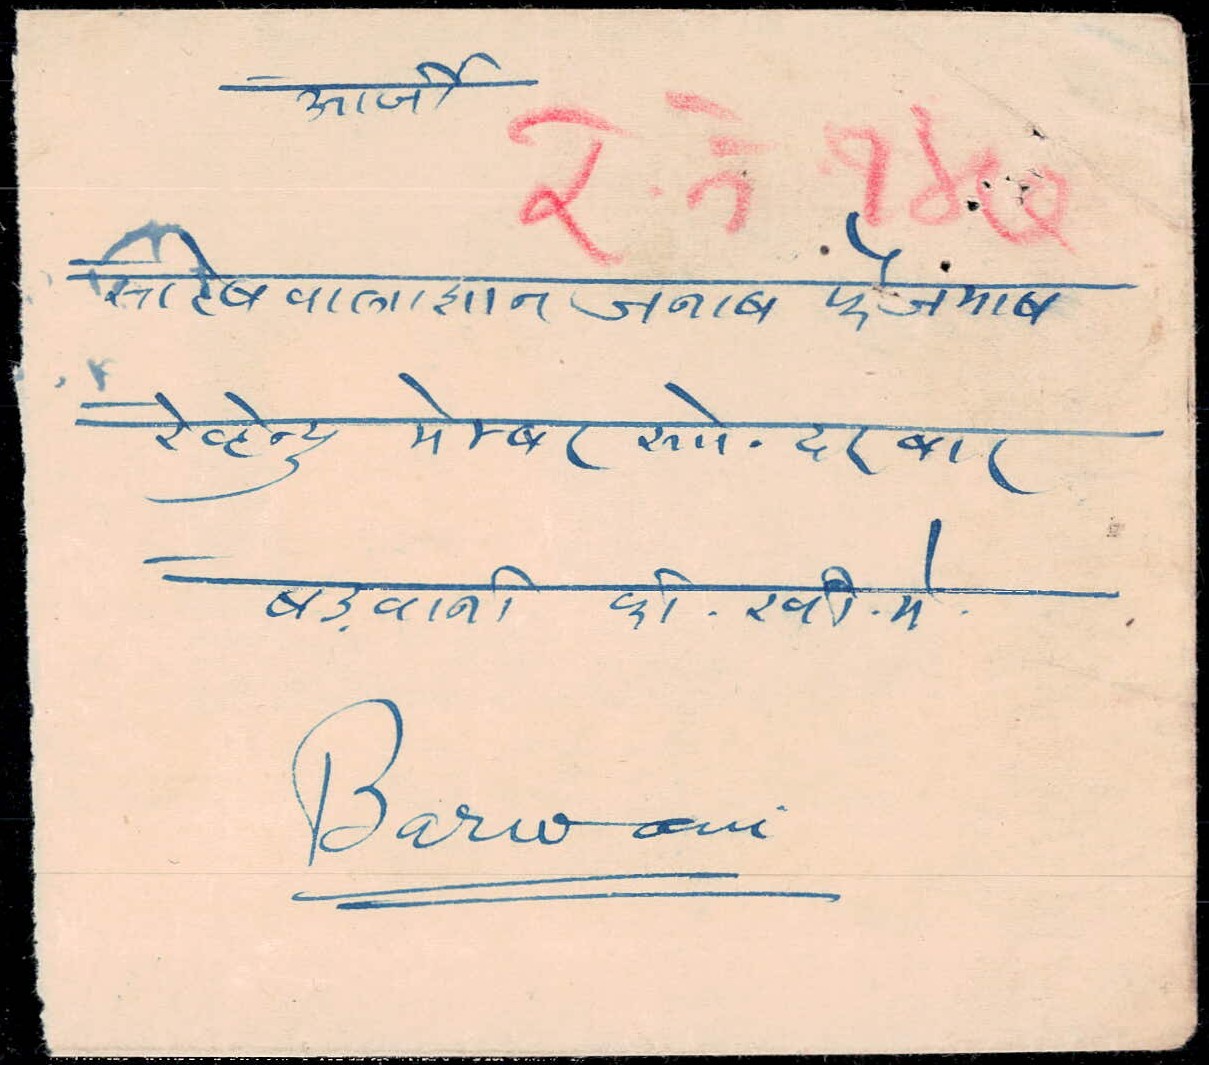 आर्जी
र. नं १४७
साहेब वालाशान जनाब फैजमाब
रेव्हेन्यु मेम्बर सा. दरबार
बड़वानी की. खी. में.
Barwani